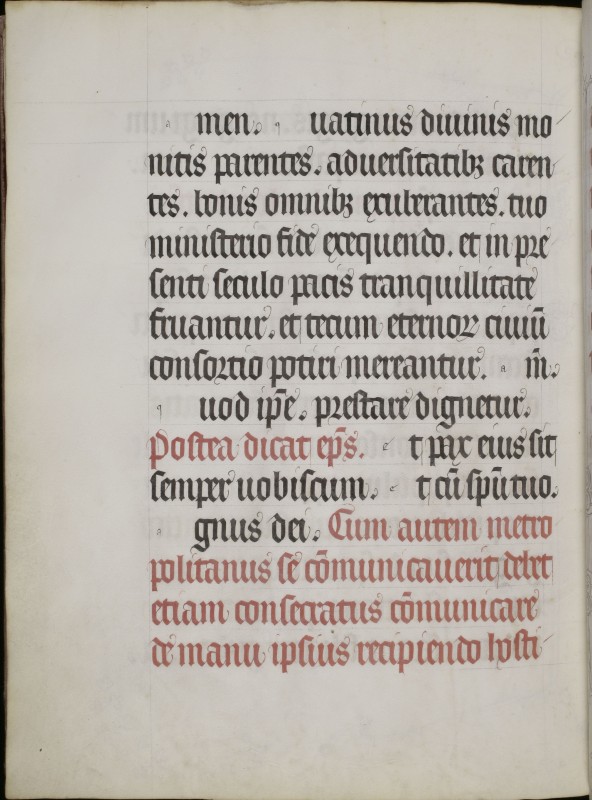 a men. q uatinus diuinis mo
nitis parentes. aduersitatibꝫ caren
tes. bonis omnibꝫ exuberantes. tuo
ministerio fide exequendo. et in pre
senti seculo pacis tranquillitate
fruantur. et tecum eternoꝝ ciuiū
consortio potiri mereantur. a m̄.
q uod ip̄e. prestare dignetur.
Postea dicat ep̄s. e t pax eius sit
semper uobiscum. e t cū sp̄u tuo.
a gnus dei. Cum autem metro
politanus se cōmunicauerit debet
etiam consecratus cōmunicare
de manu ipsius recipiendo hosti